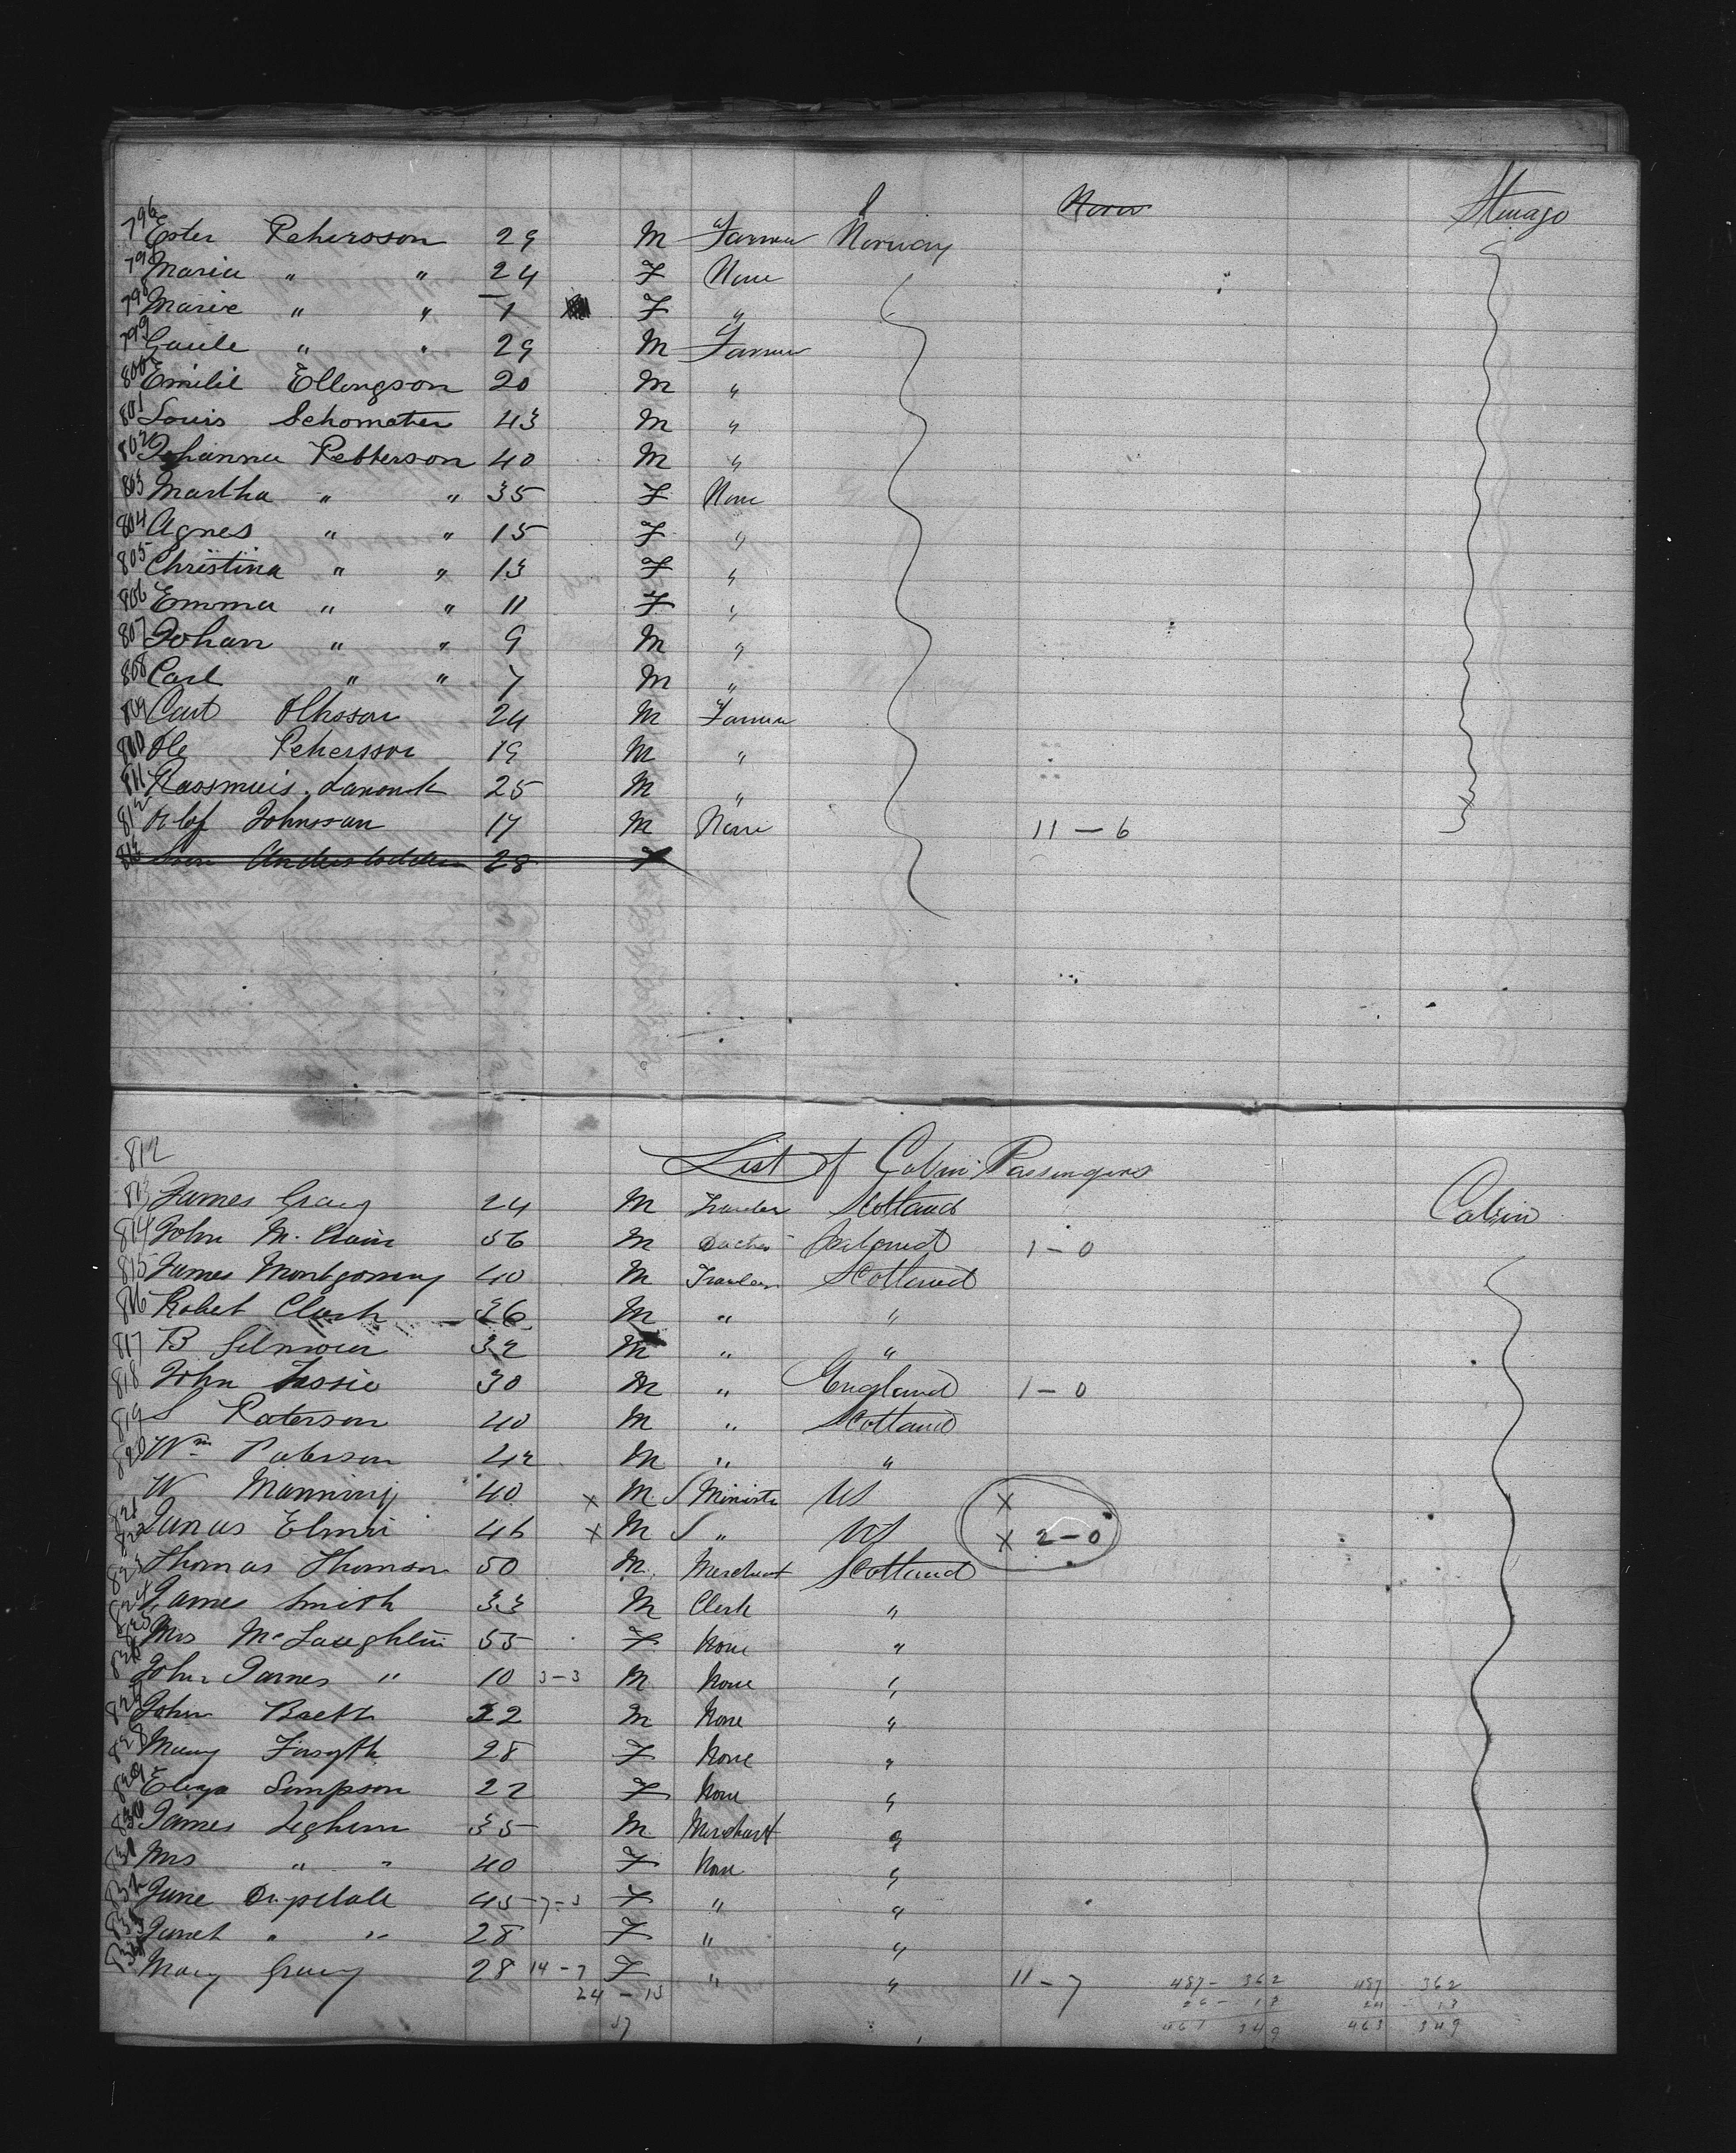 Norw Steerage
796 Ester Pehersson 29 M Farmer Norway
798 Maria " " 24 F None
798 Marie " " 1 F "
799 " " 29 M Farmer
800 Emilie Ellengson 20 M "
801 Louis 43 M "
802 Johanna Petterson 40 M "
803 Martha " " 35 F None
804 Agnes " " 15 F "
805 Christina " " 13 F "
806 Emma " " 11 F "
807 Johan " " 9 M "
808 Carl " " 7 M "
809 Carl Olhsson 24 M Farmer
810 Ole Pehersson 19 M "
811 Rassmuis 25 M "
812 Olof Johnssan 17 M None 11-6
813 28 F
812 List of Cabin Passengers
813 James Graig 24 M Scotland Cabin
814 John M. Clain 56 M 1-0
815 James Montgomery 40 M Scotland
816 Robert Clark 36 M " "
817 B Gilmour 32 M " "
818 John 30 M " England 1-0
819 S Paterson 40 M " Scotland
820 Wm Paterson 42 M " "
821 W Manning 40 x M S Ministr US x
822 Elmri 46 x M S " US x 2-0
823 Thomas Thomson 50 M Merchant Scotland
824 James Smith 33 M Clerk "
825 Mrs McLaughlin 55 F None "
826 John James " 10 3-3 M None "
827 John 22 M None "
828 Mary Forsyth 28 F None "
829 Eliza Simpson 22 F None "
830 James 35 M Merchant "
831 Mrs " " 40 F None "
832 Jane 45 7-3 F " "
833 Janet " " 28 F " "
834 Mary Graig 28 14-7 F " " 11-7 487-362 487 362
24-13 26-13 24-13
37 461 349 463 349